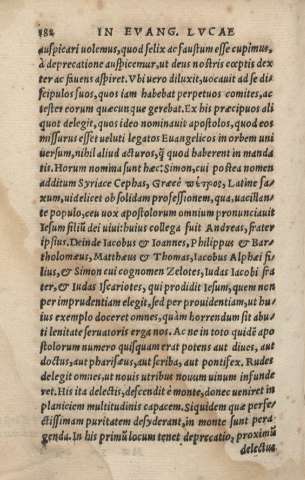 182 IN EVANG. LVCAE
auspicari uolemus, quod felix ac faustum esse cupimus,
à deprecatione auspicemur, ut deus nostris cœptis dex
ter ac fauens aspiret. Vbi uero diluxit, uocauit ad se di-
scipulos suos, quos iam habebat perpetuos comites, ac
testes eorum quæcunque gerebat. Ex his præcipuos ali
quot delegit, quos ideo nominauit apostolos, quod eos
missurus esset ueluti legatos Euangelicos in orbem uni
uersum, nihil aliud acturos, q̃ quod haberent in manda
tis. Horum nomina sunt hæc: Simon, cui postea nomen
additum Syriace Cephas, Græcè πέτρος, Latine sa-
xum, uidelicet ob solidam professionem, qua, uacillan-
te populo, ceu uox apostolorum omnium pronunciauit
Iesum filiũ dei uiui: huius collega fuit Andreas, frater
ipsius. Deinde Iacobus & Ioannes, Philippus & Bar-
tholomæus, Matthæus & Thomas, Iacobus Alphæi fi-
lius, & Simon cui cognomen Zelotes, Iudas Iacobi fra
ter, & Iudas Iscariotes, qui prodidit Iesum, quem non
per imprudentiam elegit, sed per prouidentiam, ut hu-
ius exemplo doceret omnes, quàm horrendum sit abu-
ti lenitate seruatoris erga nos. Ac ne in toto quidẽ apo
stolorum numero quisquam erat potens aut diues, aut
doctus, aut pharisæus, aut scriba, aut pontifex. Rudes
delegit omnes, ut nouis utribus nouum uinum infunde
ret. His ita delectis, descendit è monte, donec ueniret in
planiciem multitudinis capacem. Siquidem quæ perfe-
ctissimam puritatem desyderant, in monte sunt pera-
genda. In his primũ locum tenet deprecatio, proximũ
delectus